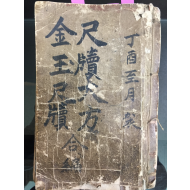 丁酉至月製
尺牘大方
金玉尺牘
合編